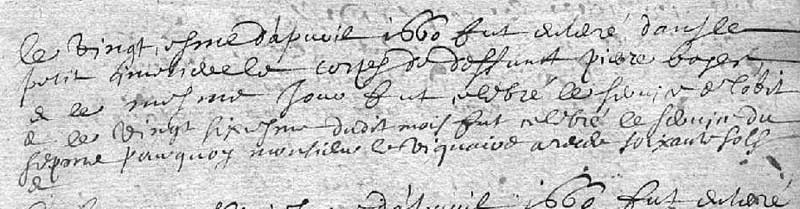 le vingt iesme dapvril 1660 fut enterré dans le
petit simetiere le corps de deffunt pierre boyer
& le mesme jour fut celebré le service de lobit
& le vingt sixiesme dudit mois fut celebré le service du
septme pourquoy monsieur le viquaire a recu soixante sols
&
dapvril 1660 fut enterré